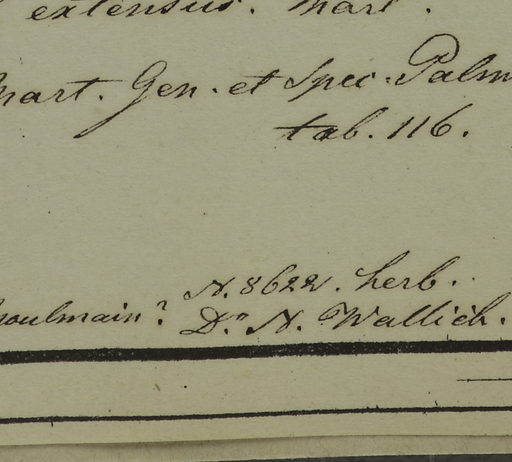 extensus. Mart.
Mart. Gen. et Spec. Palm
tab. 116.
N. 8622. herb.
Moulmain? Dr. N. Wallich.